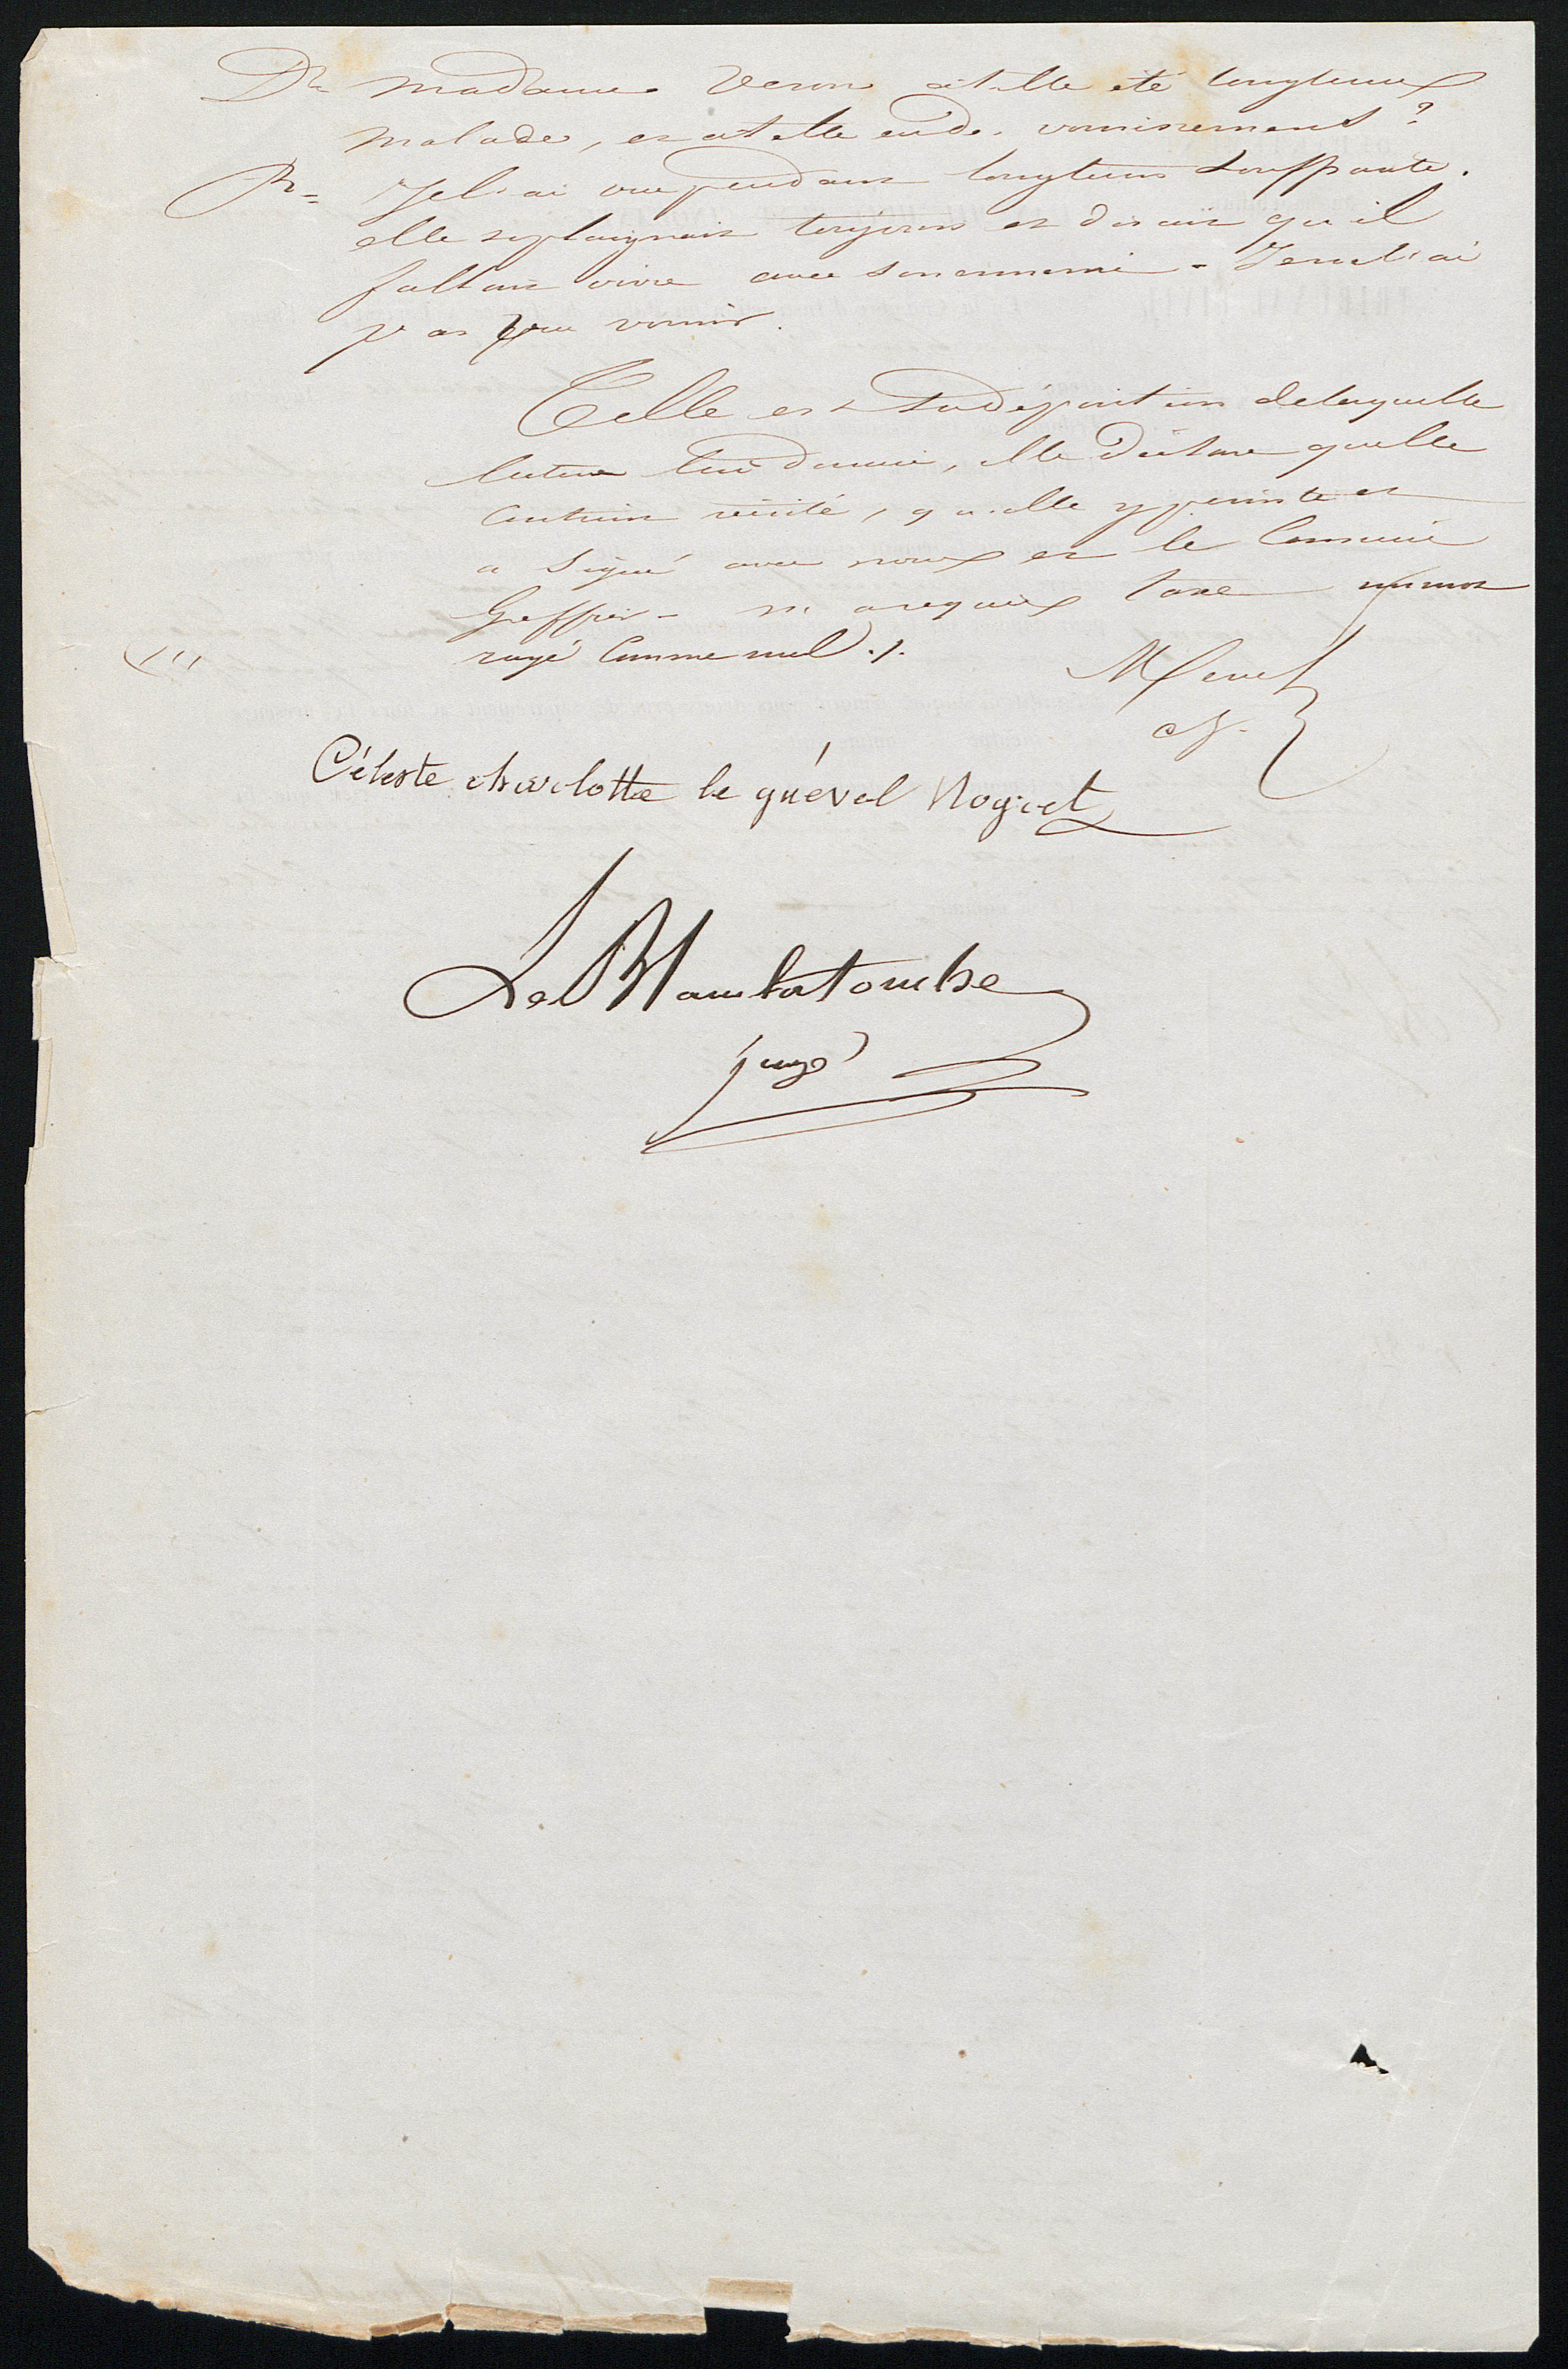 De Madame Veron at elle été longtemps
malade, et at elle eu de vomissement ?
R = Je l'ai vue pendant longtems souffrante.
elle se plaignait toujours et disait qu'il
fallait vivre avec son ennemi - Je ne l'ai
pas vu vomir.
Telle est sa déposition de laquelle
lecture lui donnée, elle déclare quelle
contient vérité, qu'elle y persiste et
a signé avec nous et le Commis
Greffier - n'a requis taxe un mot
rayé comme nul ./.
Céleste charlotte le guével Nogret
juge